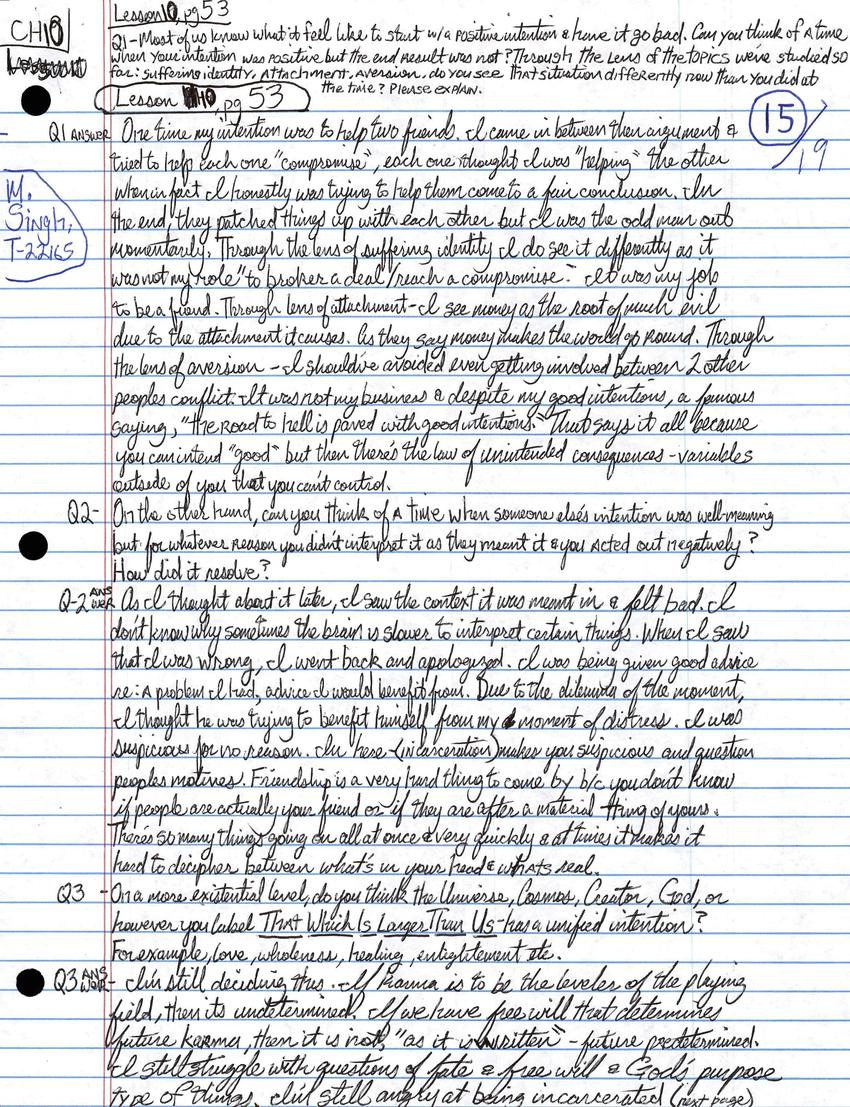 CH10
Lesson 10, pg 53
Q1-Most of us know what it feel like to start w/a positive intention & have it go bad. Can you think of A time
when your intention was positive but the end result was not? Through the Lens of the topics we've studied so
far: suffering identity, Attachment, Aversion, do you see that situation differently now than you did at
the time? Please explain.
Lesson 10, pg 53
15/19
M.
Singh,
T-22165
Q1 ANSWER One time my intention was to help two friends. I came in between their argument &
tried to help each one "compromise", each one thought I was "helping" the other
when in fact I honestly was trying to help them come to a fair conclusion. In
the end, they patched things up with each other but I was the odd man out
momentarily. Through the lens of suffering identity I do see it differently as it
was not my role "to broker a deal/reach a compromise." It was my job
to be a friend. Through lens of attachment-I see money as the root of much evil
due to the attachment it causes. As they say money makes the world go round. Through
the lens of aversion - I should've avoided even getting involved between 2 other
peoples conflict. It was not my business & despite my good intentions, a famous
saying, "the road to hell is paved with good intentions." That says it all because
you can intend "good" but then there's the law of unintended consequences-variables
outside of you that you can't control.
Q2- On the other hand, can you think of A time when someone else's intention was well-meaning
but for whatever reason you didn't interpret it as they meant it & you Acted out negatively?
How did it resolve?
Q-2 ANSWER As I thought about it later, I saw the context it was meant in & felt bad. I
don't know why sometimes the brain is slower to interpret certain things. When I saw
that I was wrong, I went back and apologized. I was being given good advice
re: A problem I had, advice I would benefit from. Due to the dilemma of the moment,
I thought he was trying to benefit himself from my moment of distress. I was
suspicious for no reason. In here-(incarceration) makes you suspicious and question
peoples motives. Friendship is a very hard thing to come by b/c you don't know
if people are actually your friend or if they are after a material thing of yours.
There's so many things going on all at once & very quickly & at times it makes it
hard to decipher between what's in your head & whAts real.
Q3 - On a more existential level, do you think the Universe, Cosmos, Creator, God, or
however you label That Which Is Larger Than Us-has a unified intention?
For example, love, wholeness, healing, enlightement etc.
Q3 ANSWER- I'm still deciding this. If Karma is to be the leveler of the playing
field, then its undetermined. If we have free will that determines
future karma, then it is not, "as it is written" - future predetermined.
I still struggle with questions of fate & free will & God's purpose
type of things. I'm still angry at being incarcerated (next page)